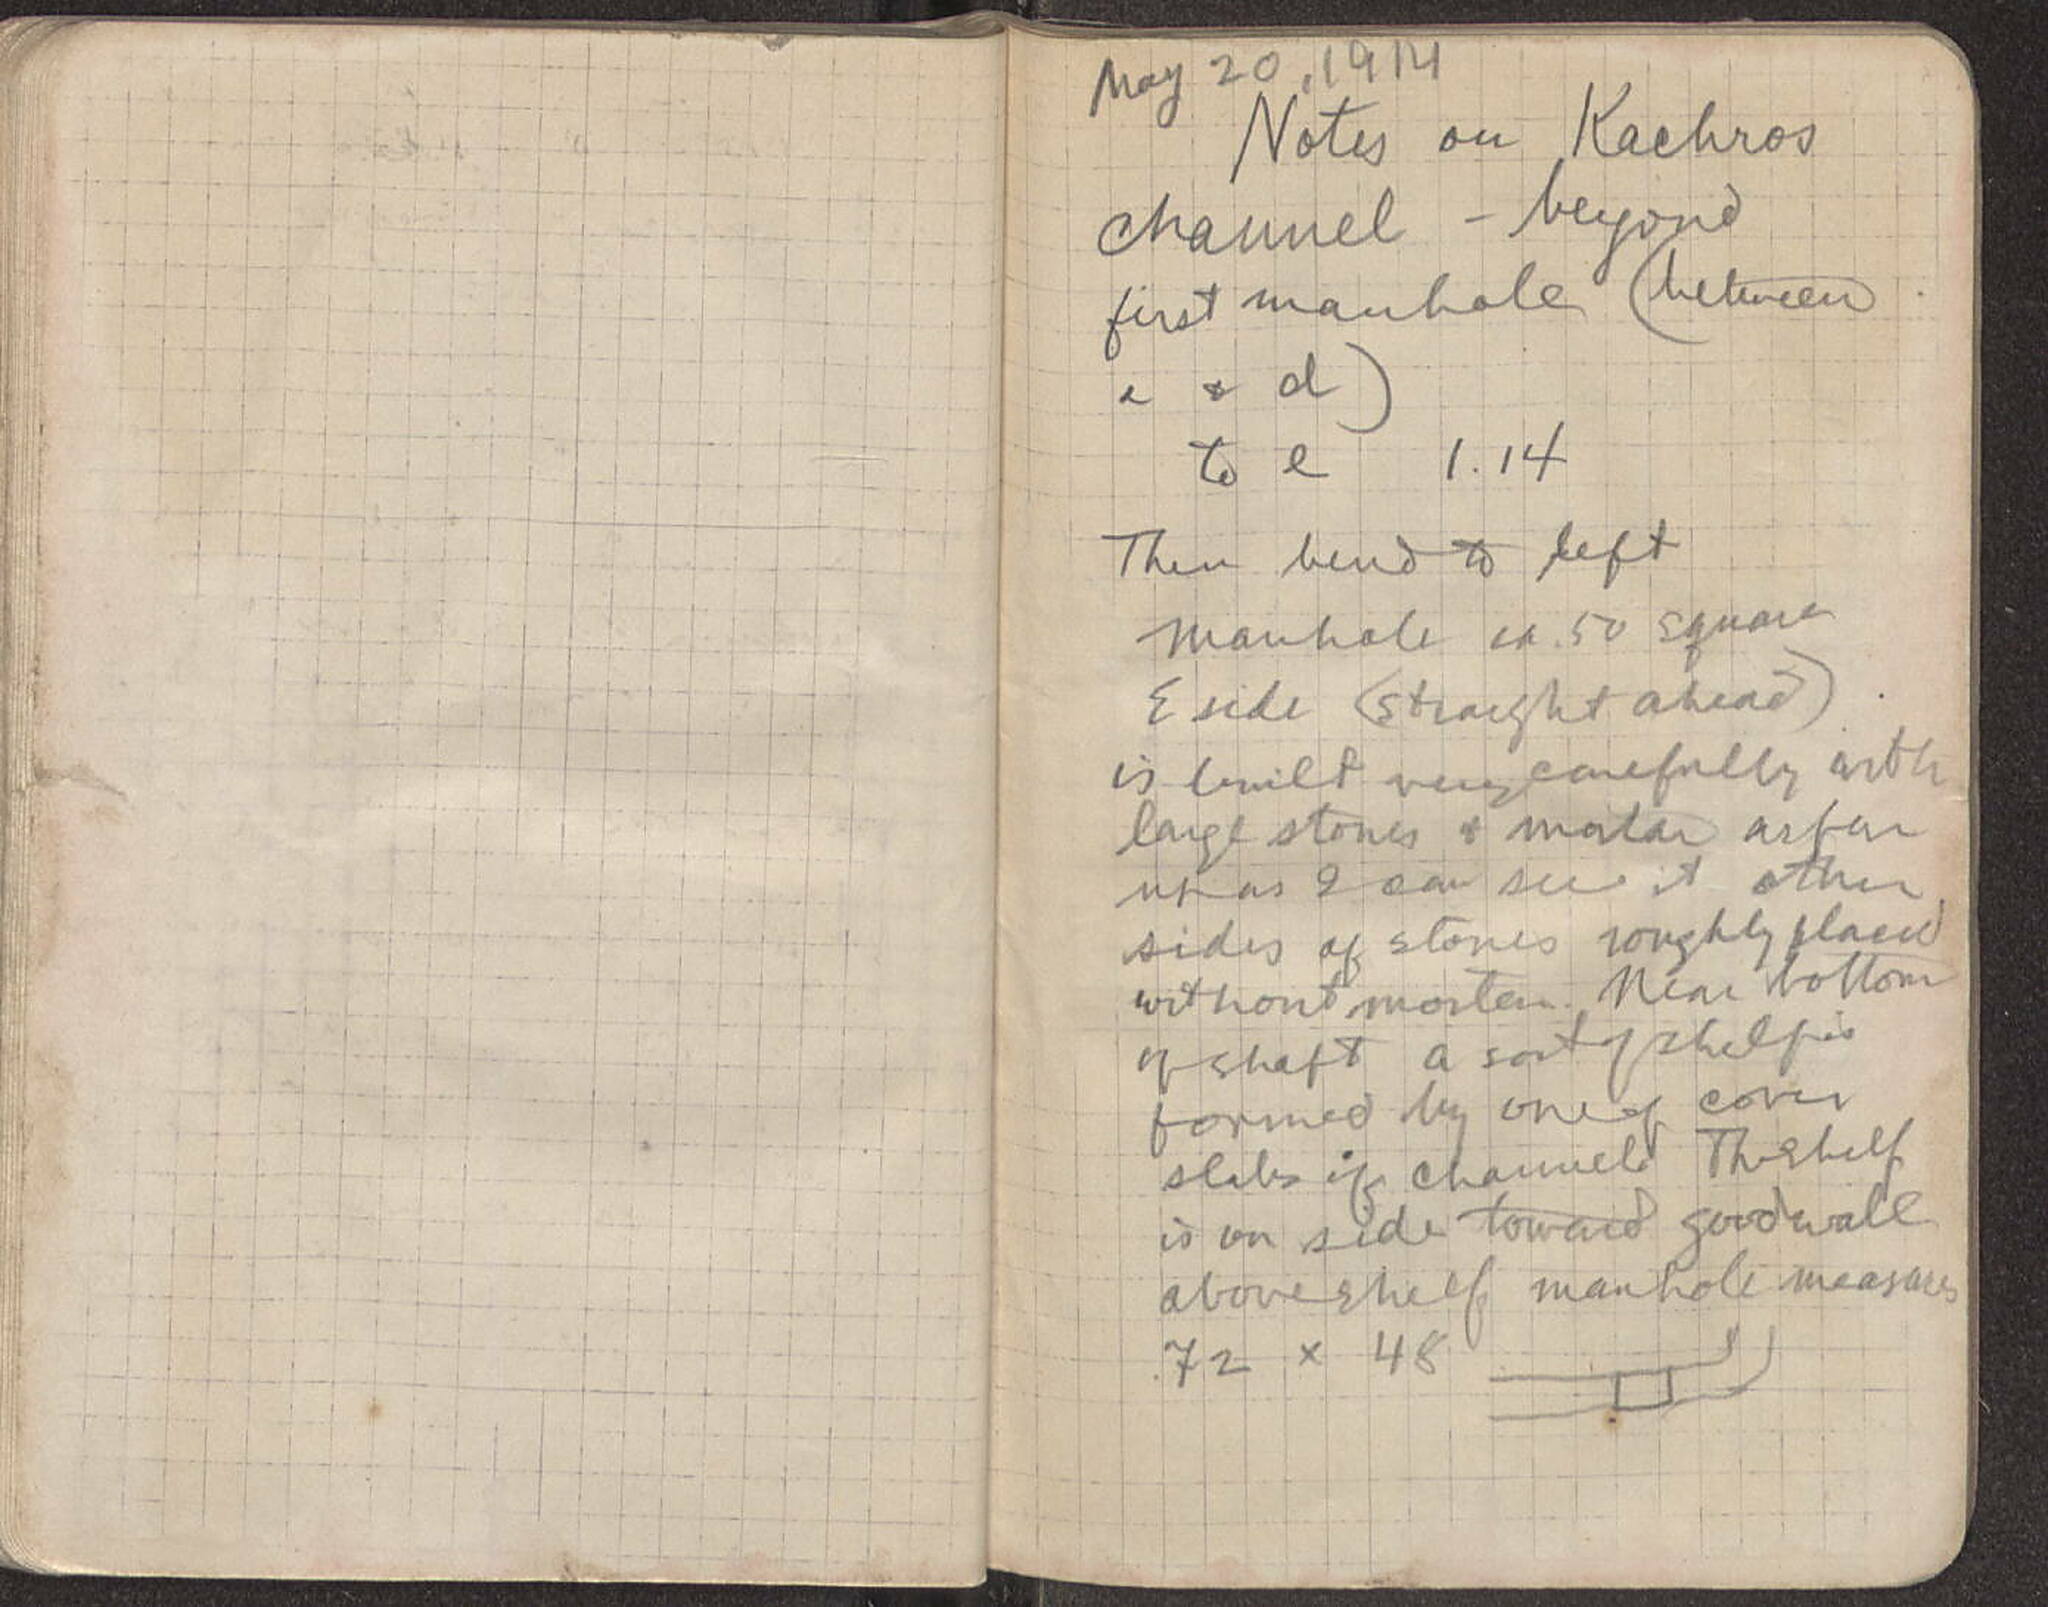 May 20, 1914
Notes on Kachros
channel - beyond
first manhole (between
& d)
to e 1.14
Then bend to left
Manhole ca .50 square
E side (straight ahead)
is built very carefully with
large stones & mortar as far
up as I can see it other
sides of stones roughly placed
without mortar. Near bottom
of shaft a sort of shelf is
formed by one of cover
slabs of channel. The shelf
is on side toward good wall
above shelf manhole measures
.72 x 48